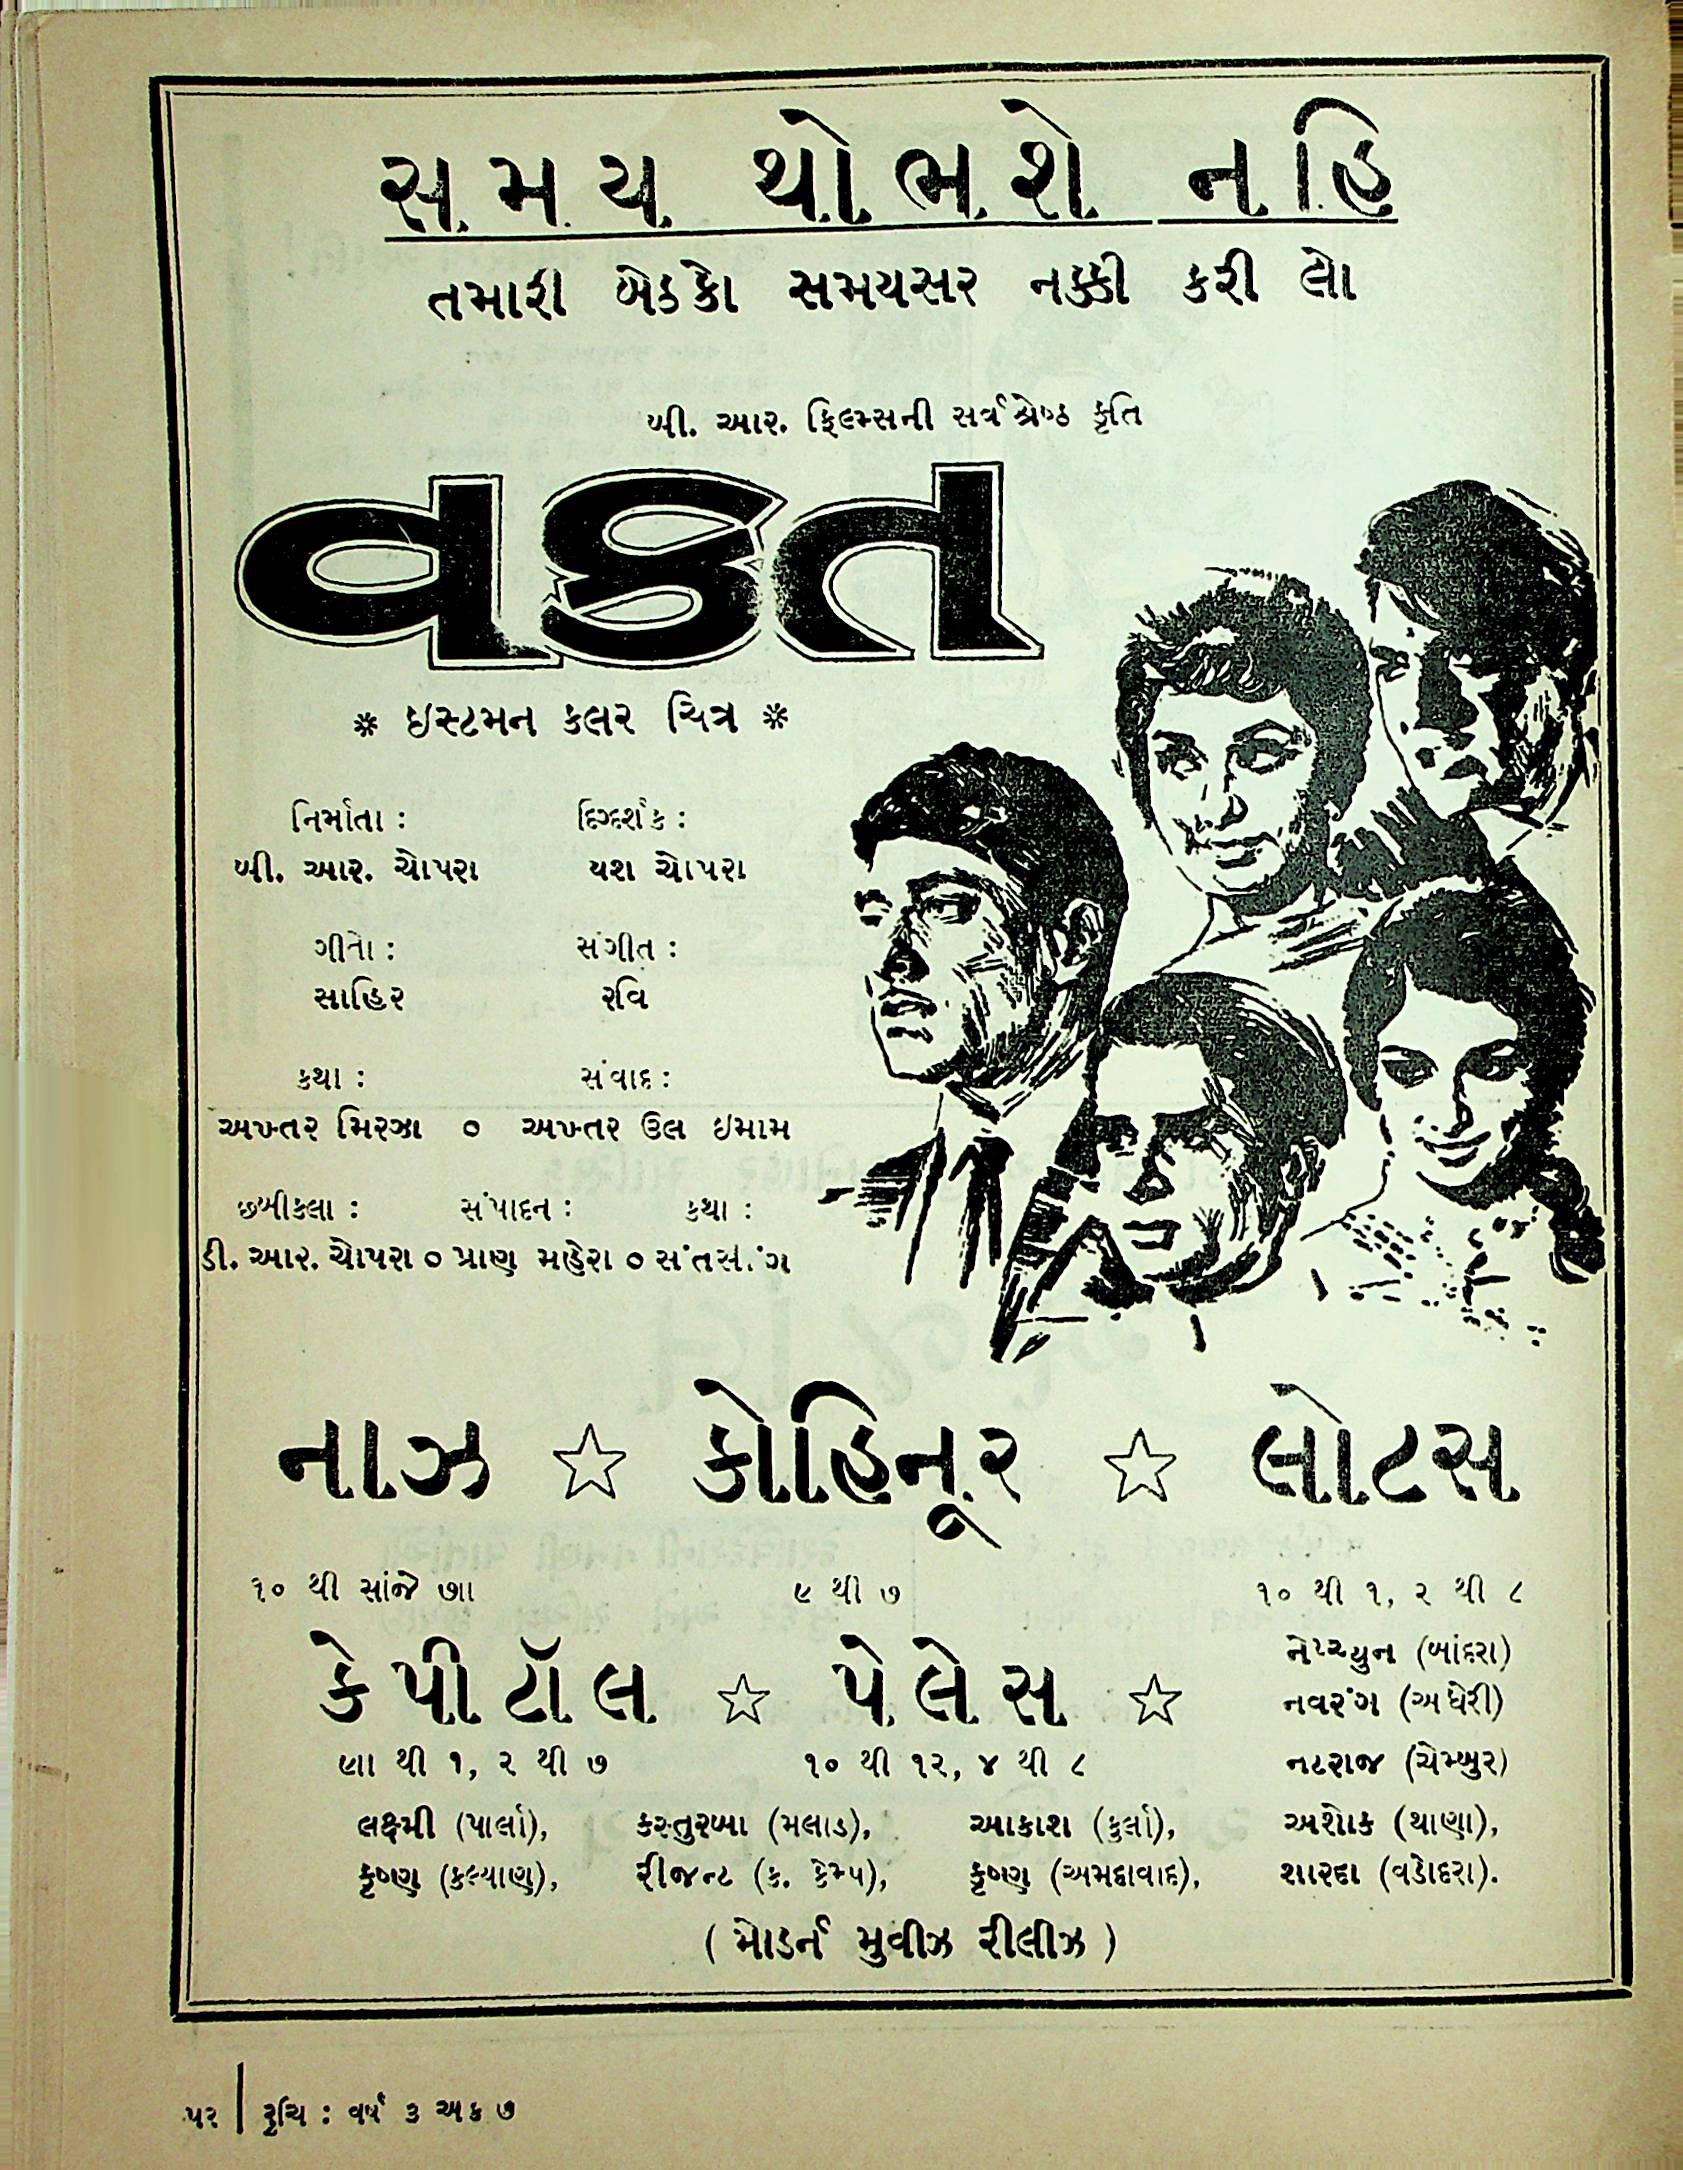 સમય થોભશે નહિ
તમારી બેઠકો સમયસર નક્કી કરી લો
બી. આર. ફિલ્મ્સની સર્વશ્રેષ્ઠ કૃતિ
વક્ત
* ઇસ્ટમન કલર ચિત્ર *
નિર્માતા : દિગ્દર્શક :
બી. આર. ચોપરા યશ ચોપરા
ગીતો : સંગીત :
સાહિર રવિ
કથા : સંવાદ :
અખ્તર મિરઝા ૦ અખ્તર ઉલ ઇમામ
છબીકલા : સંપાદન : કથા :
ડી. આર. ચોપરા ૦ પ્રાણ મહેરા ૦ સંતસિંગ
નાઝ ☆ કોહિનૂર ☆ લોટસ
૧૦ થી સાંજે ૭ાા ૯ થી ૭ ૧૦ થી ૧, ૨ થી ૮
કેપીટૉલ ☆ પેલેસ ☆
૯ાા થી ૧, ૨ થી ૭ ૧૦ થી ૧૨, ૪ થી ૮
નેપ્ચ્યુન (બાંદરા)
નવરંગ (અંધેરી)
નટરાજ (ચેમ્બુર)
લક્ષ્મી (પાર્લા), કસ્તુરબા (મલાડ), આકાશ (કુર્લા), અશોક (થાણા),
કૃષ્ણ (કલ્યાણ), રીજન્ટ (ક. કેમ્પ), કૃષ્ણ (અમદાવાદ), શારદા (વડોદરા).
( મોડર્ન મુવીઝ રીલીઝ )
૫૨ | રૂચિ : વર્ષ ૩ અંક ૭